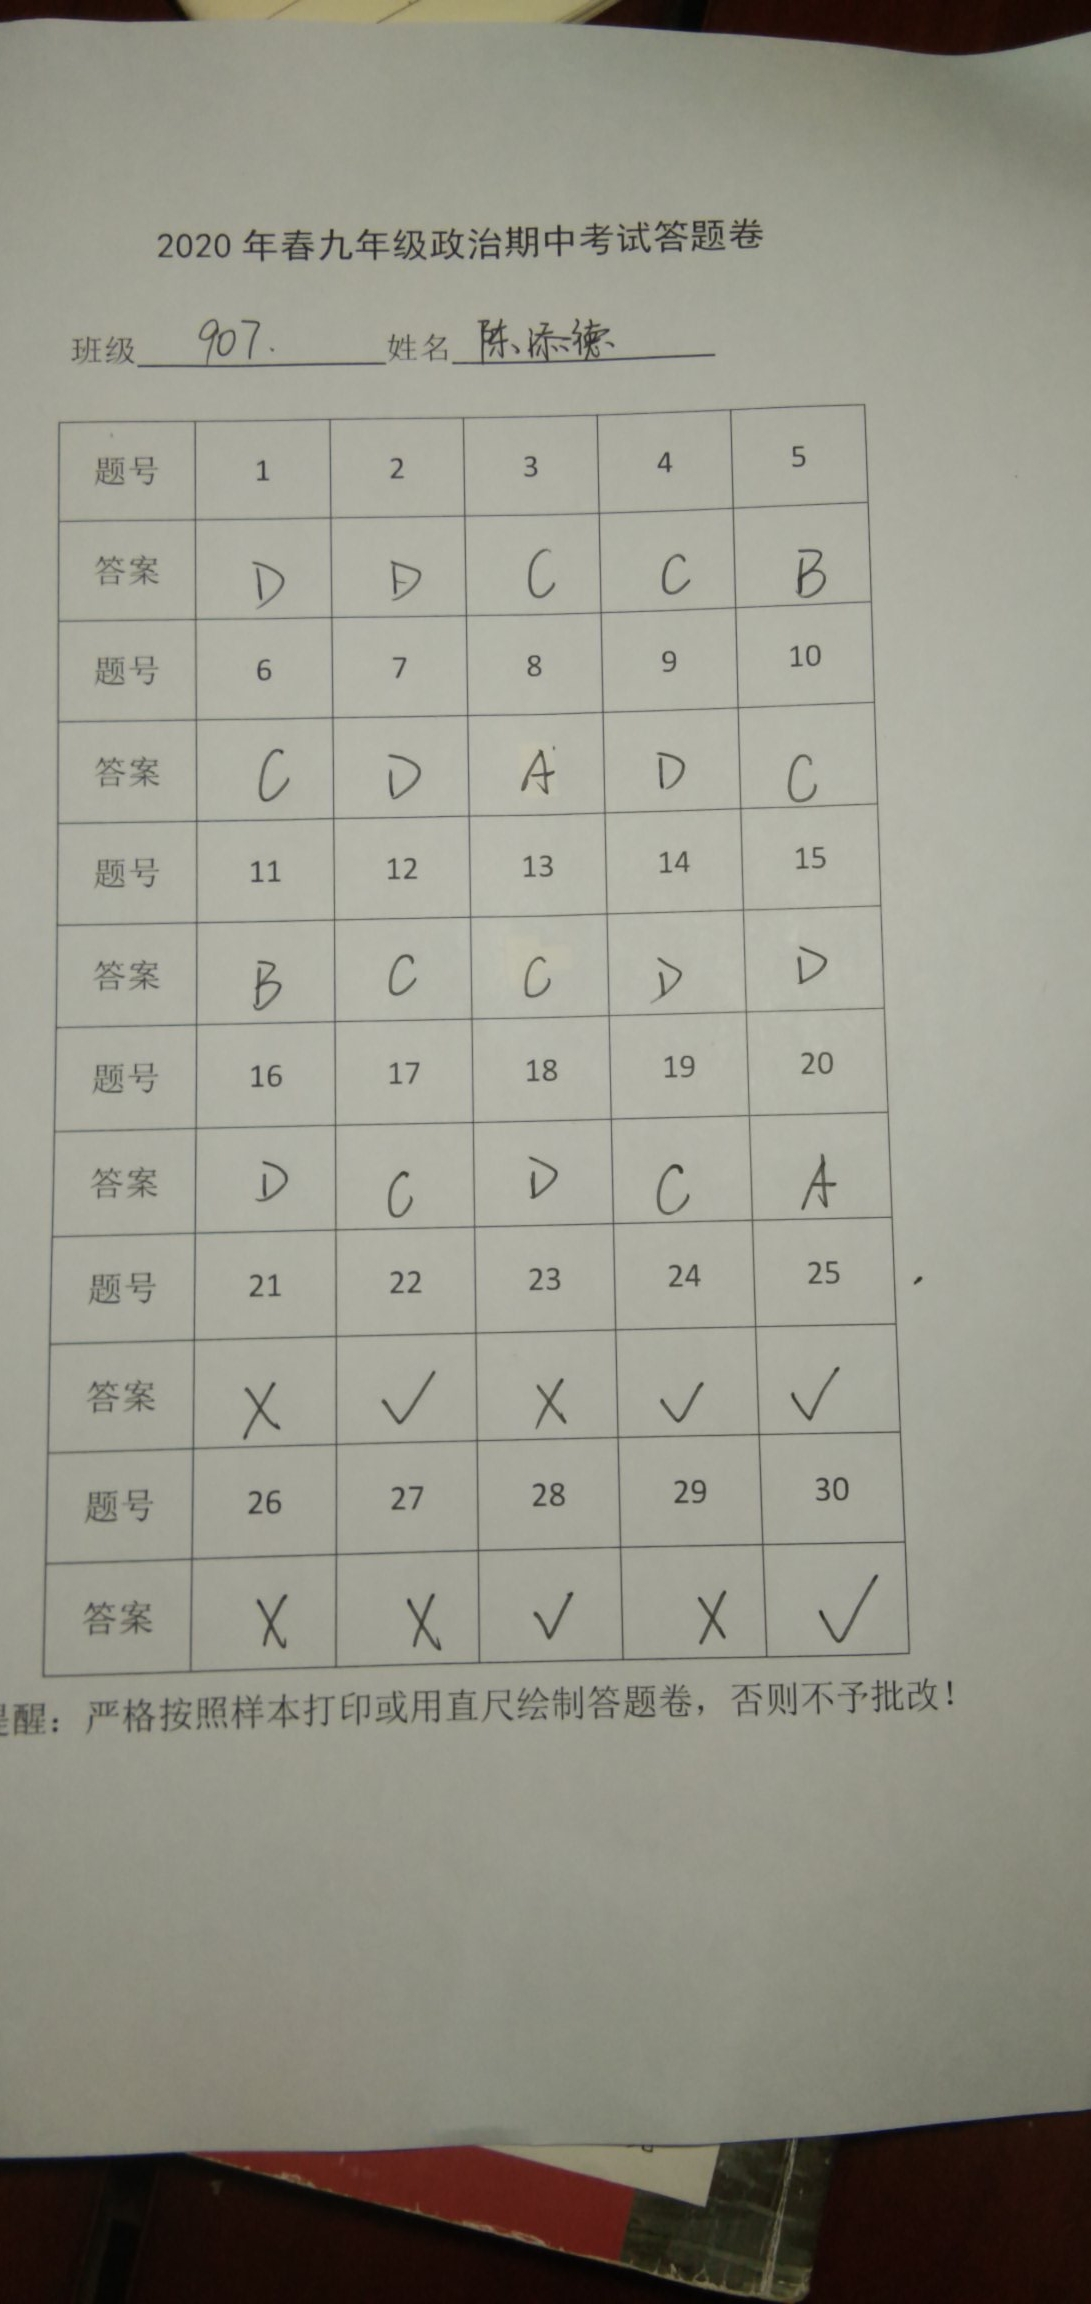 2020年春九年级政治期中考试答题卷
班级 907. 姓名 陈添德
题号 1 2 3 4 5
答案 D D C C B
题号 6 7 8 9 10
答案 C D A D C
题号 11 12 13 14 15
答案 B C C D D
题号 16 17 18 19 20
答案 D C D C A
题号 21 22 23 24 25
答案 X ✓ X ✓ ✓
题号 26 27 28 29 30
答案 X X ✓ X ✓
醒：严格按照样本打印或用直尺绘制答题卷，否则不予批改！